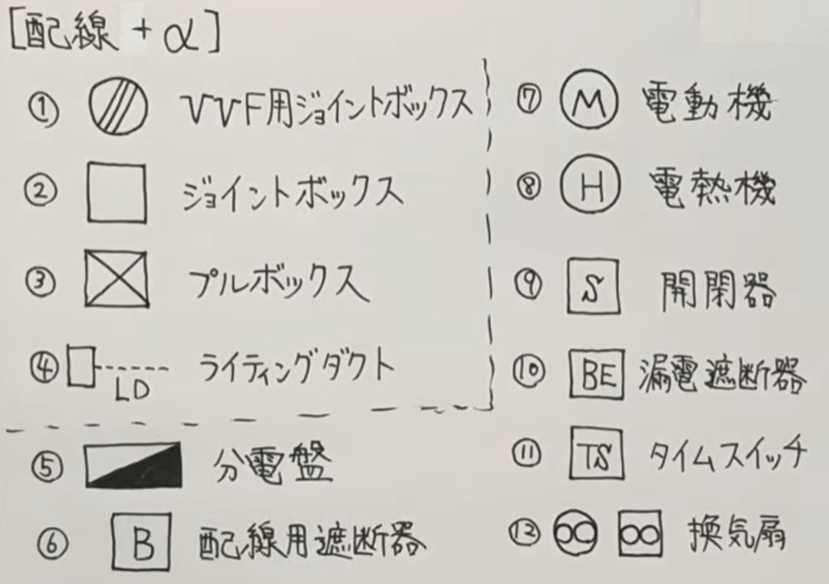 [配線 + α]
① VVF用ジョイントボックス
② ジョイントボックス
③ プルボックス
④ LD ライティングダクト
⑤ 分電盤
⑥ B 配線用遮断器
⑦ M 電動機
⑧ H 電熱機
⑨ S 開閉器
⑩ BE 漏電遮断器
⑪ TS タイムスイッチ
⑫ 換気扇